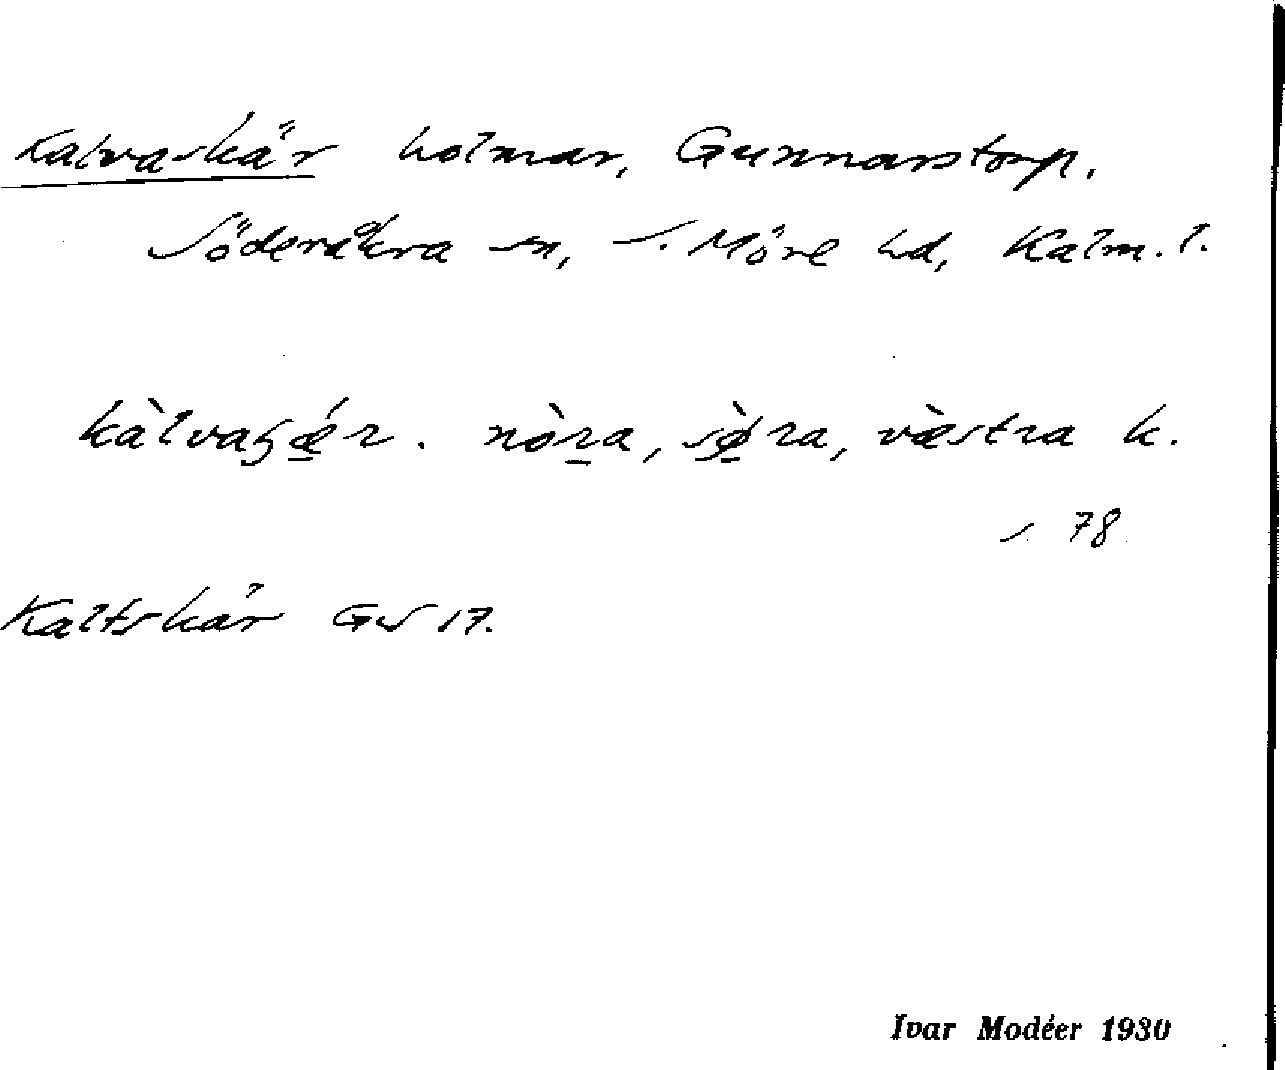 Kalvaskär holmar, Gunnarstorp.
Söderåkra sn, S. Möre hd, Kalm. l.
kàlvaʂǽ̠r. nòr̠a, sø̠̀ra, væ̀stra k.
s. 78
Kalfskär GS 17.
Ivar Modéer 1930